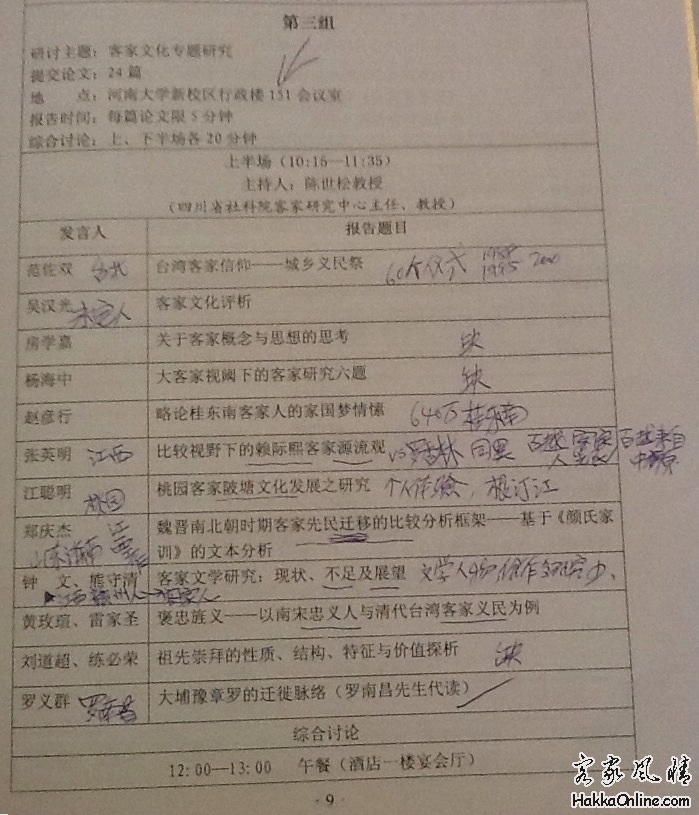 第三组
研讨主题：客家文化专题研究
提交论文：24篇
地 点：河南大学新校区行政楼151会议室
报告时间：每篇论文限5分钟
综合讨论：上、下半场各20分钟
上半场（10:15—11:35）
主持人：陈世松教授
（四川省社科院客家研究中心主任、教授）
发言人 报告题目
范佐双 台北 台湾客家信仰——城乡义民祭 60个仪式 1988 1995 2000
吴汉光 客家文化评析
房学嘉 关于客家概念与思想的思考 缺
杨海中 大客家视阈下的客家研究六题 缺
赵彦行 略论桂东南客家人的家国梦情愫 640万 桂东南
张英明 江西 比较视野下的赖际熙客家源流观 vs罗香林 同异
江聪明 桃园 桃园客家陂塘文化发展之研究 个人体验，
郑庆杰 魏晋南北朝时期客家先民迁移的比较分析框架——基于《颜氏家
训》的文本分析
钟 文、熊守清 客家文学研究：现状、不足及展望
黄玫瑄、雷家圣 褒忠旌义——以南宋忠义人与清代台湾客家义民为例
刘道超、练必荣 祖先崇拜的性质、结构、特征与价值探析 缺
罗义群 大埔豫章罗的迁徙脉络（罗南昌先生代读）
综合讨论
12:00—13:00 午餐（酒店一楼宴会厅）
· 9 ·
客家风情
HakkaOnline.com